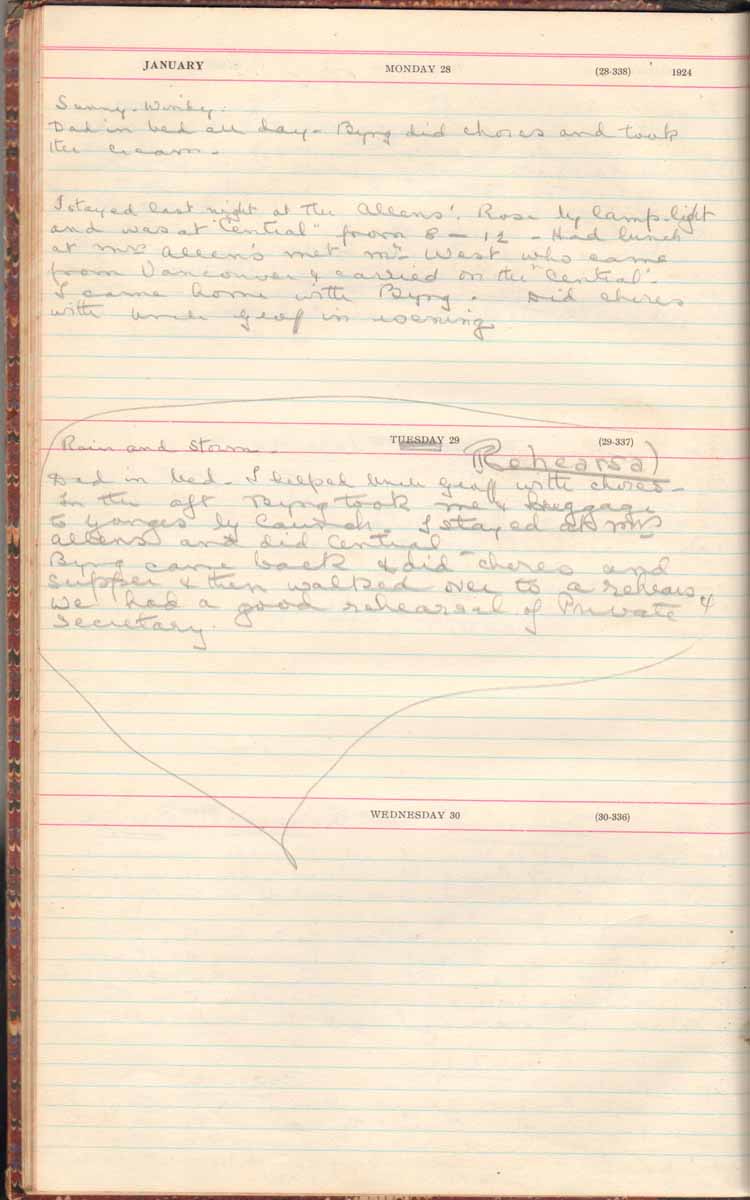 JANUARY MONDAY 28 (28-338) 1924
Sunny. Windy.
Dad in bed all day - Byng did chores and took
the cream -
I stayed last night at the Allens'. Rose by lamp-light
and was at "Central" from 8 - 12 - Had lunch
at Mrs Allen's met Mr West who came
from Vancouver & carried on the "Central".
I came home with Byng. Did chores
with Uncle Geof in evening
TUESDAY 29 (29-337)
Rain and Storm - Rehearsal
Dad in bed - I helped Uncle Geoff with chores -
In the aft Byng took me & luggage
to Ganges by launch. I stayed at Mrs
Allens and did Central
Byng came back & did chores and
supper & then walked over to a rehearsal &
we had a good rehearsal of Private
Secretary.
WEDNESDAY 30 (30-336)